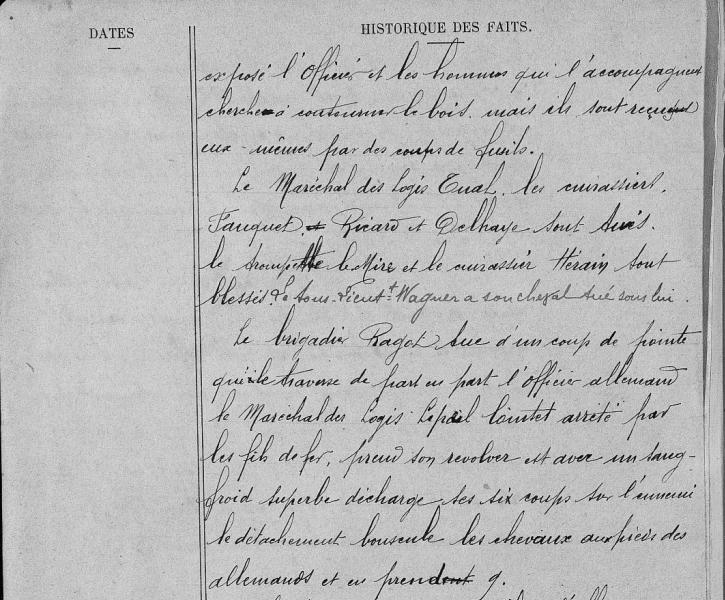 DATES
HISTORIQUE DES FAITS.
exposé l'Officier et les hommes qui l'accompagnent
cherche à contourner le bois. mais ils sont reçus
eux-mêmes par des coups de fusils.
Le Maréchal des Logis Tual. les cuirassiers.
Fauquet. Ricard et Delhaye sont tués.
le trompette le Mire et le cuirassier Hérain sont
blessés. Le sous-Lieutt Wagner a son cheval tué sous lui.
Le brigadier Ragot tue d'un coup de pointe
qui le traverse de part en part l'officier allemand
le Maréchal des Logis arrêté par
les fils de fer, prend son revolver et avec un sang-
froid superbe décharge ses six coups sur l'ennemi
le détachement bouscule les chevaux aux pieds des
allemands et en prend 9.